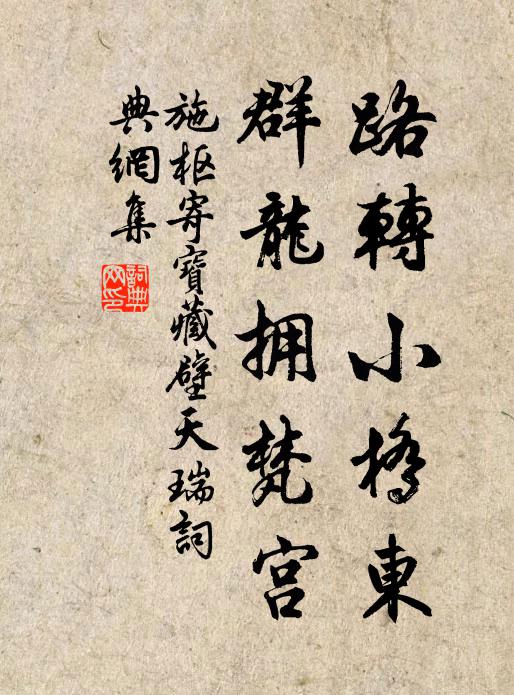 路轉小橋東
群龍拥梵宫
施枢寄寶藏壁天瑞詞
典網集
詞典網印